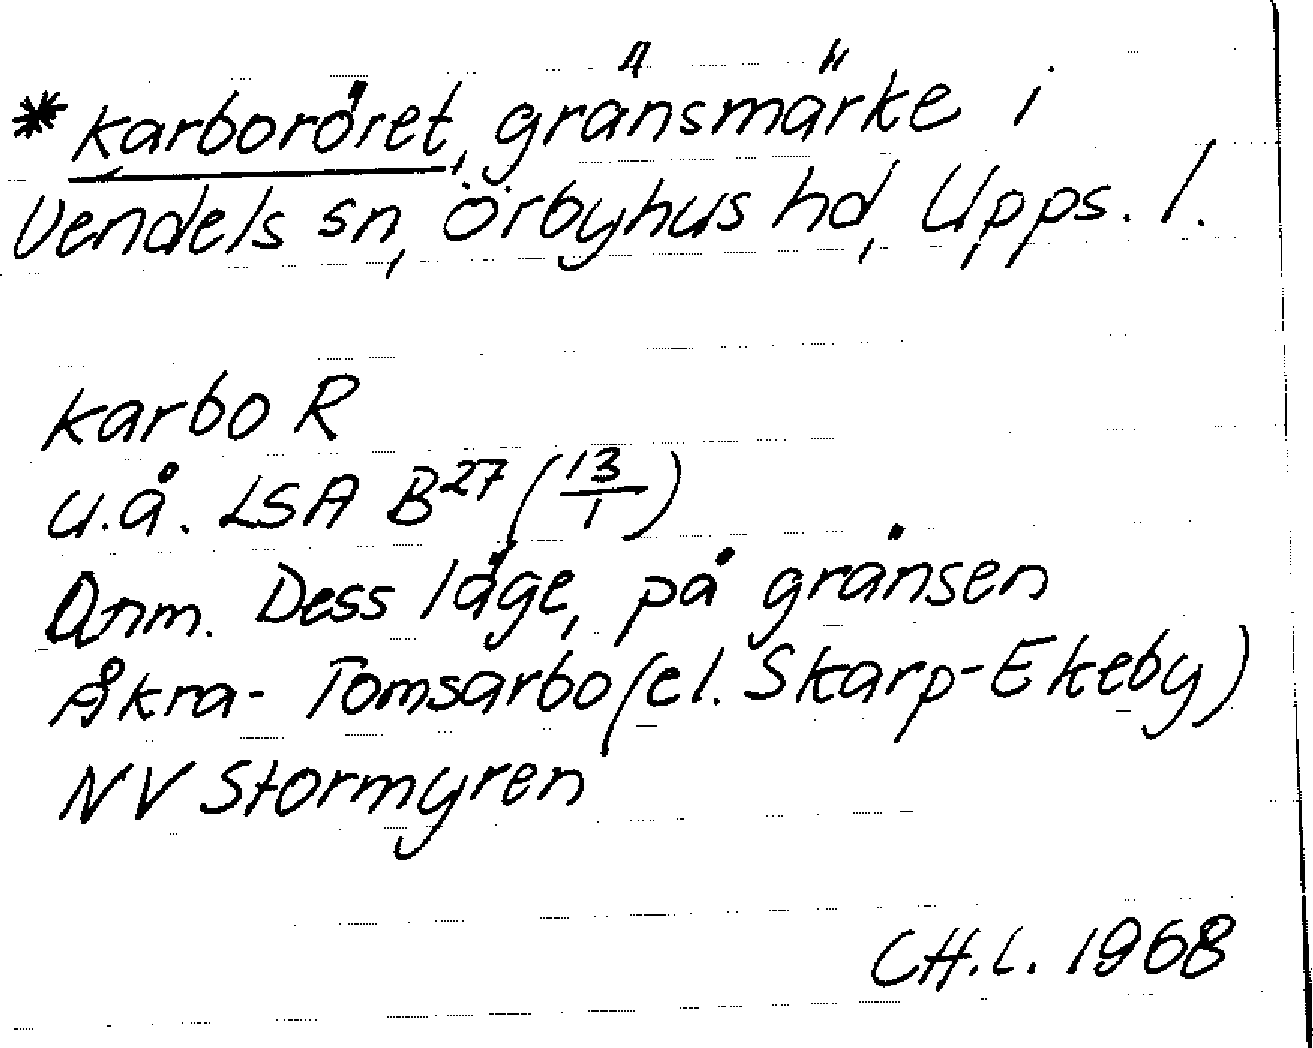 * Karboröret, gränsmärke i
Vendels sn, Örbyhus hd, Upps. l.
Karbo R
u.å. LSA B27 (13/1)
Anm. Dess läge, på gränsen
Åkra- Tomsarbo (el. Skarp-Ekeby)
NV Stormyren
CH.L. 1968